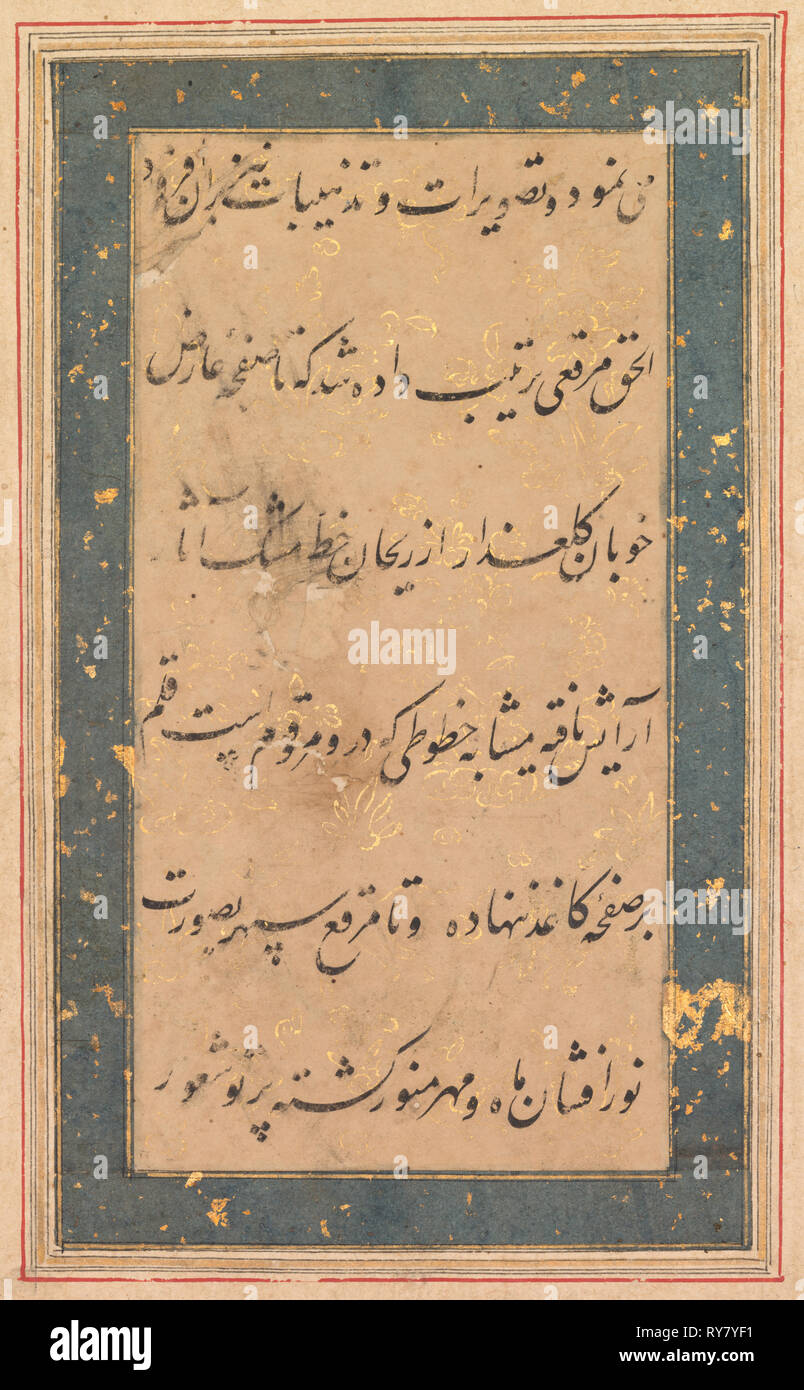 می نمود و تصویرات و تذهیبات نیز بران افزود
الحق مرقعی ترتیب داده شد که تا صفحهٔ عارض
خوبان گلعذار از ریحان خط مشک آسا
آرایش یافته مشابه خطوطی که درو مرقوم است قلم
بر صفحهٔ کاغذ نهاده و تا مرقع سپهر بصورت
نور افشان ماه و مهر منور گشته پرتو شعور
alamy
alamy
Image ID: RY7YF1
www.alamy.com